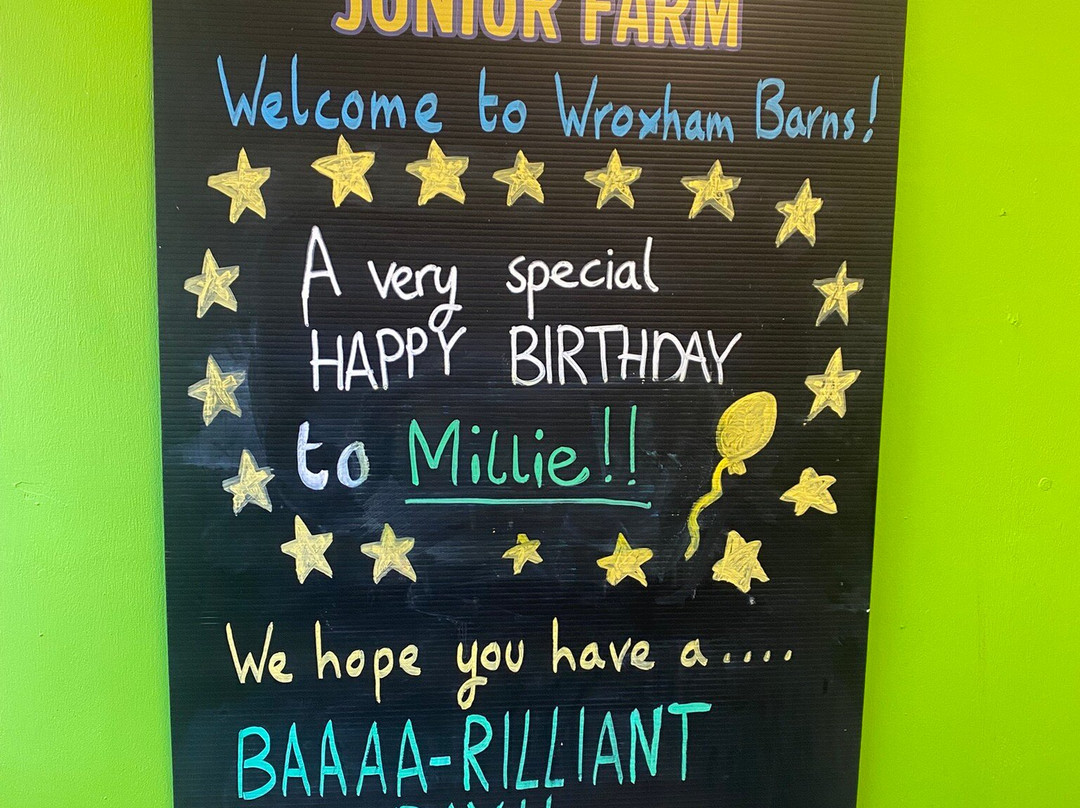 JUNIOR FARM
Welcome to Wroxham Barns!
A very special
HAPPY BIRTHDAY
to Millie!!
We hope you have a....
BAAAA-RILLIANT